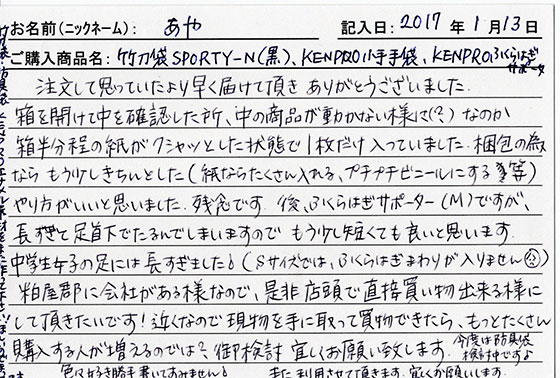 お名前(ニックネーム): あや 記入日: 2017 年 1月13日
ご購入商品名: 竹刀袋SPORTY-N(黒)、KENPRO小手袋、KENPROふくらはぎサポータ
注文して思っていたより早く届けて頂き ありがとうございました.
箱を開けて中を確認した所、中の商品が動かない様に(?)なのか
箱半分程の紙がクシャッとした状態で1枚だけ入っていました. 梱包の為
なら もう少しきちんとした(紙ならたくさん入れる、プチプチビニールにする等)
やり方がいいと思いました. 残念です. 後、ふくらはぎサポーター(M)ですが、
長すぎて足首下でたるんでしまいますので もう少し短くても良いと思います.
中学生女子の足には長すぎました!(Sサイズでは、ふくらはぎまわりが入りません
粕屋郡に会社がある様なので、是非店頭で直接買い物出来る様に
して頂きたいです!近くなので現物を手に取って買物できたら、もっとたくさん
購入する人が増えるのでは?御検討 宜しくお願い致します. 今度は防具袋
検討中ですよ
色々好き勝手書いてみません! また利用させて頂きます. 宜しくお願いします.